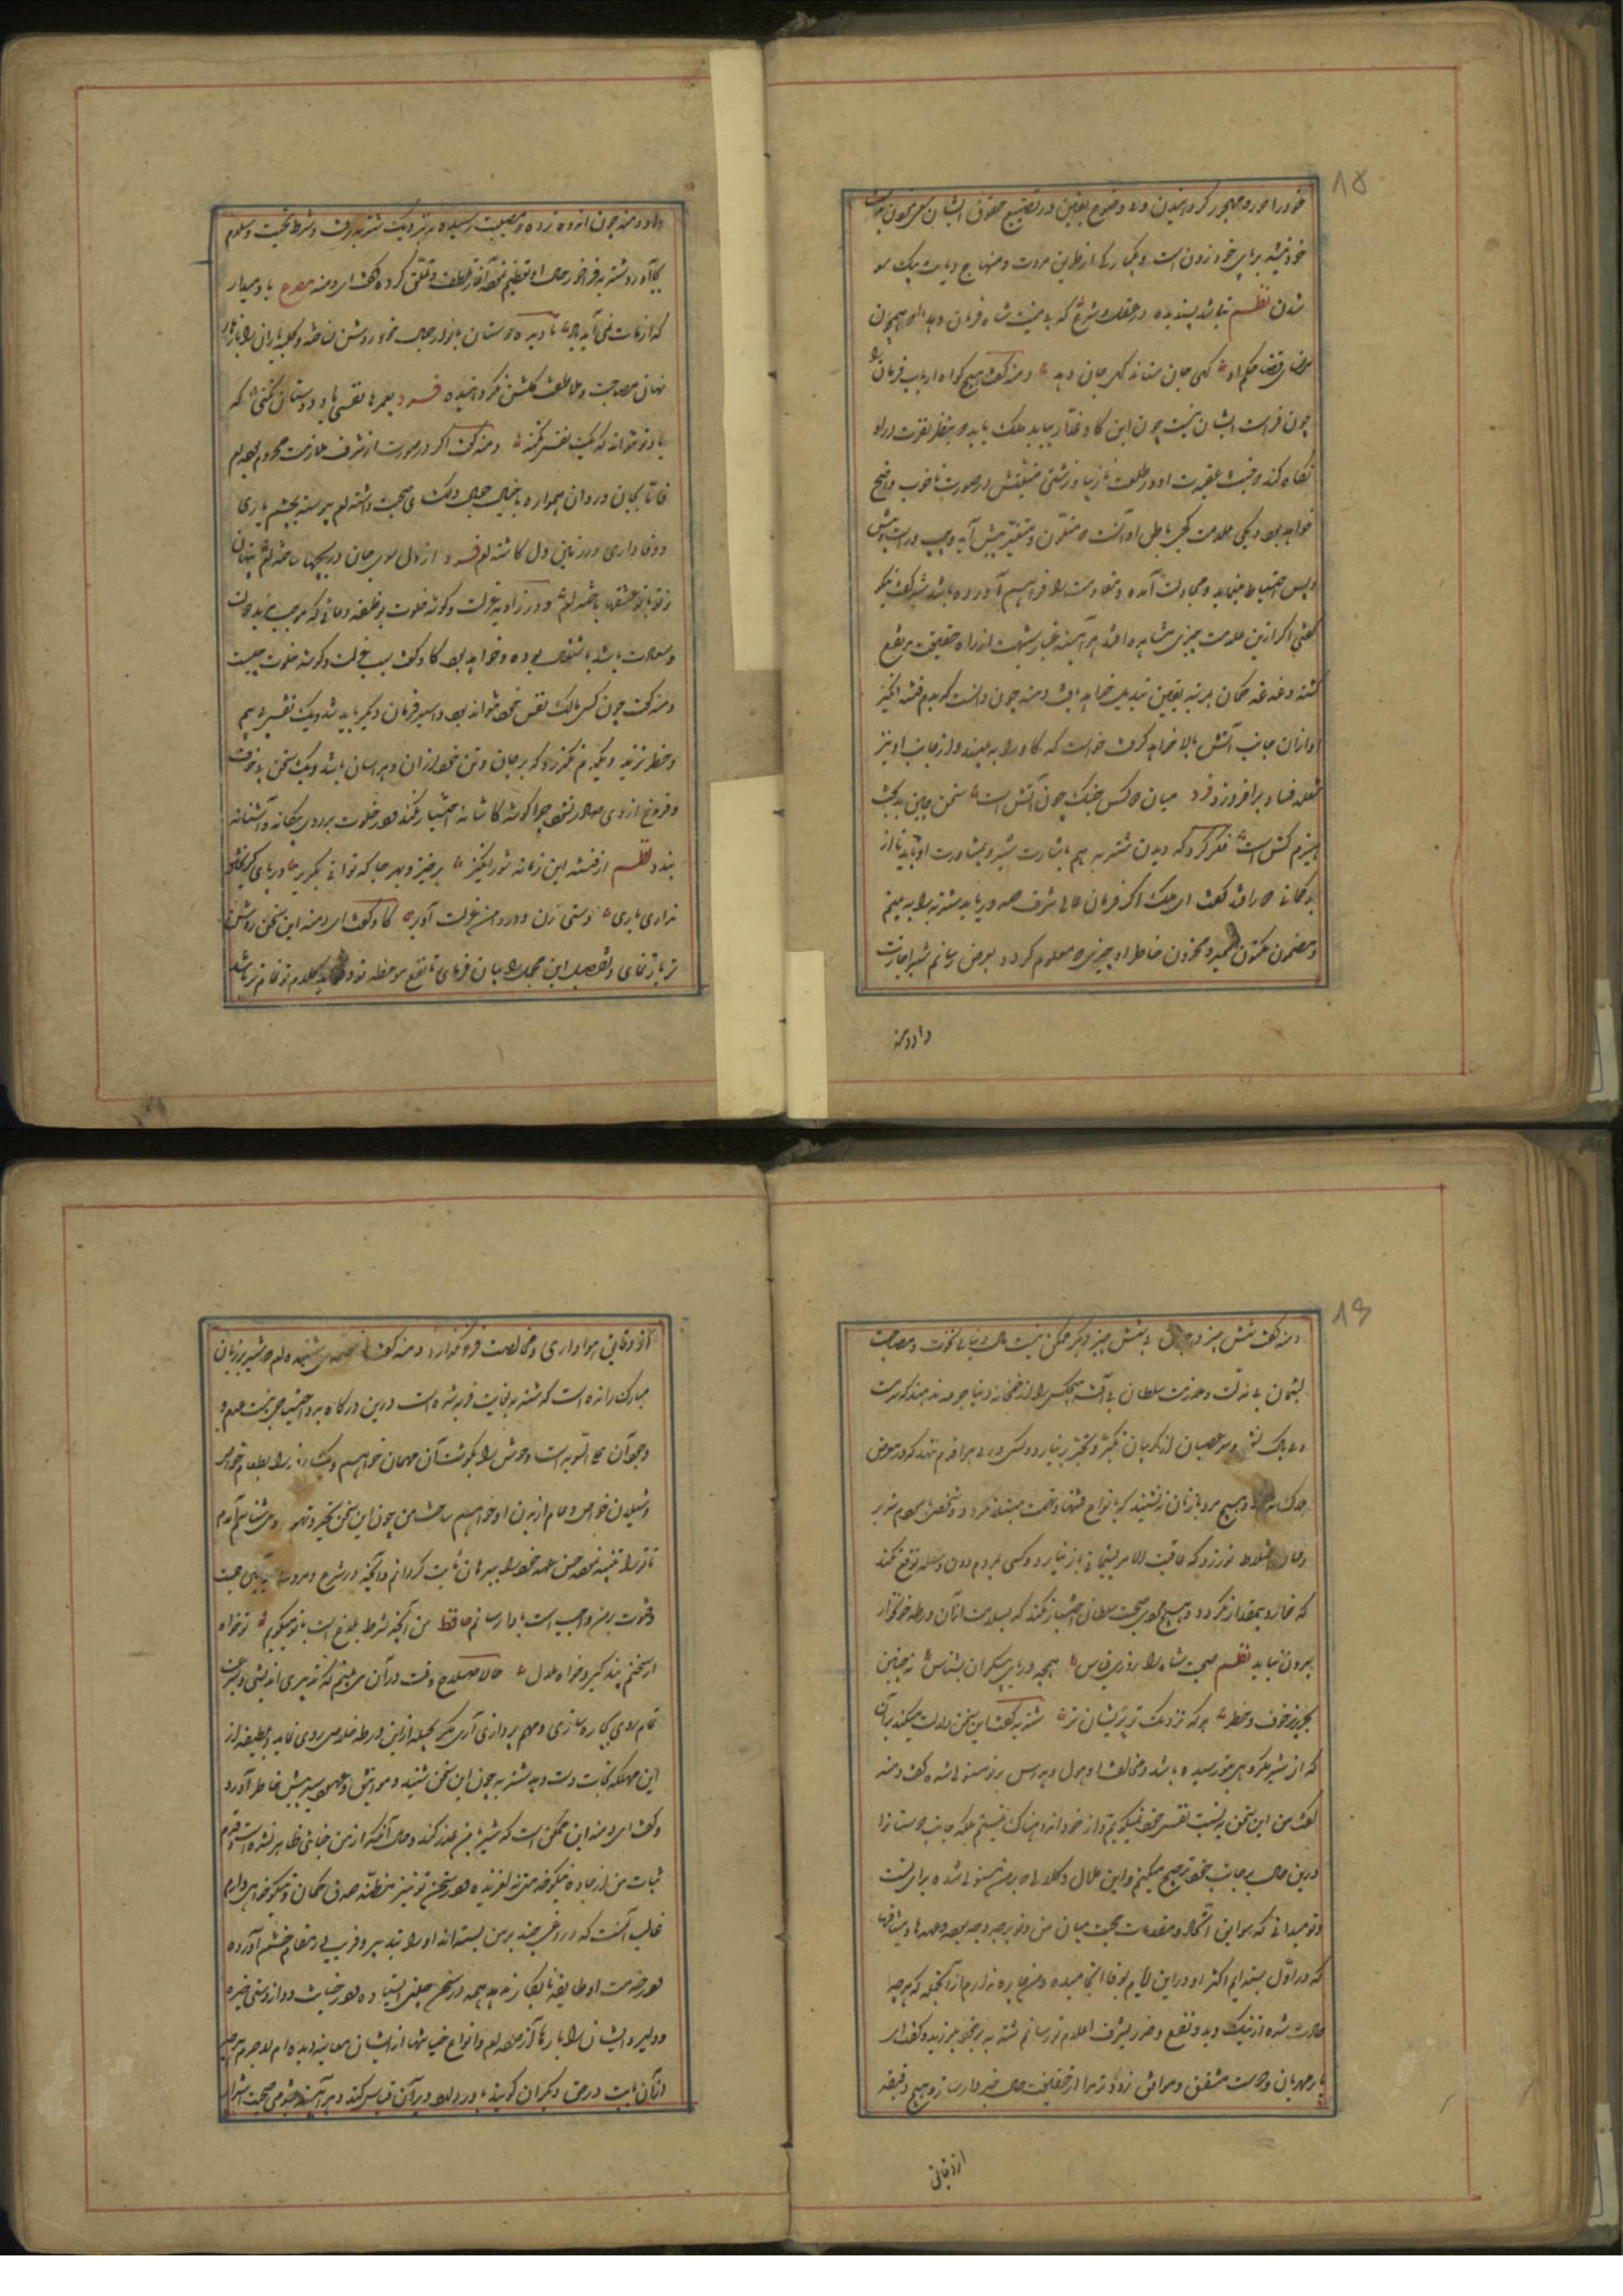 ۱۸
خود را دور و مهجور گردانیدن و بی وضوح یقین در تضییع حقوق ایشان سعی نمودن بدست
خود تیشه بر پای خود زدن است و یکبارگی از طریق مروت و منهاج دیانت یک سو
شدن نظم نباشد پسندیده در عقل و شرع که بی بینت شاه فرمان دهد
قضا حکم او گهی جان ستاند گهی جان دهد دمنه گفت هیچ گواه ارباب فرمان را
چون فراست ایشان نیست چون این گاو غدار بیاید ملک باید که بنظر تفرس در او
نگاه کند و خبث عقیدت او در طلعت نازیبا و زشتی در صورت ناخوب واضح
خواهد بود و یکی علامت کجی باطن او آنست که متلون و متغیر پیش آید و چپ و راست و پیش
و پس احتیاط مینماید و مجادلت آماده و مقاومت را فراهم آورده باشد شیر گفت نیکو
گفتی اگر ازین علامت چیزی مشاهده افتد هر آینه غبار شبهت از راه حقیقت مرتفع
گشته دغدغه گمان بمرتبه یقین تبدیل خواهد یافت دمنه چون دانست که بدم فتنه انگیز
او ازان جانب آتش بالا خواهد گرفت خواست که گاو را به بیند و از جانب او نیز
شعله فساد برافروزد فرد میان دو کس جنگ چون آتش است سخن چین بدبخت
هیزم کش است فکر کرد که دیدن شتربه هم باشارت شیر و بمشاورت او باید تا از
بدگمانی دور افتد گفت ای ملک اگر فرمان عالی شرف صدور یابد شتربه را به بینم
و مضمون مکنون ضمیر و مخزون خاطر او چیزی معلوم کرده بعرض رسانم شیر اجازت
داد دمنه
داد دمنه چون اندوه زده و مصیبت رسیده به نزدیک شتربه رفت و شرط تحیت و سلام
بجا آورد شتربه فراخور حال او تعظیم نموده آغاز لطف و تملق کرده گفت ای دمنه مصرع یاد میدار
که از مات نمی آید یاد که دیده دوستان بانوار جمال خود روشن نساخته و کلبه یاران را بازهار
نهان مصاحبت و ملاطفت گلشن نگردانیده فرد بعمرها نفسی یاد دوستان نکنی که
یاد تو نتواند که یک نفس نکند دمنه گفت اگر در صورت از شرف ملازمت محروم بوده ام
فاما بجان و روان همواره با خیال جمال دلگشای صحبت داشته ام پیوسته تخم یاری
و وفاداری در زمین دل کاشته ام فرد از دل سوی جان دریچها ساخته ام پنهان
ز تو با تو عشقها باخته ام و در زاویه عزلت و گوشه خلوت بوظیفه دعائی که موجب مزید دولت
و سعادت باشد مشغول بوده و خواهد بود گاو گفت سبب عزلت و گوشه خلوت چیست
دمنه گفت چون کس مالک نفس خود نتواند بود و اسیر فرمان دیگر باید شد و یک نفس بی بیم
و خطر نزند و یکدم نگذرد که بر جان و تن خود لرزان و هراسان باشد و یک سخن بی خوف
و فزع از وی صادر نشود چرا گوشه کاشانه اختیار نکند و در خلوت بر روی بیگانه و آشنا نه
بندد نظم از فتنه این زمانه شورانگیز برخیز و بهر جا که توانی بگریز ور پای گریختن
نداری باری دستی زن و در دامن عزلت آویز گاو گفت ای دمنه این سخن روشن
تر باز نمای و تفصیل این مجمل را بیان فرمای تا نفع موعظه تو و فایده کلام تو تمام تر باشد
۱۹
دمنه گفت شش چیز در جهان بی شش چیز دیگر ممکن نیست مال دنیا بی نخوت و مصاحبت
لئیمان بی مذلت و ملازمت سلطان بی آفت هیچکس را از خمخانه دنیا جرعه ندهند که مست
و بی باک نشود و سر عصیان از گریبان تکبر و تجبر بر نیارد و کسی در پی هوا قدم ننهد که در معرض
هلاک نیفتد و هیچ مرد با زنان ننشیند که بانواع فتنها و تهمت مبتلا نگردد و شخص بمردم شریر
و خاین اختلاط نورزد که عاقبت الامر پشیمانی باز نیارد و کسی بمردم دون و سفله توقع نکند
که خوار و بیمقدار نگردد و هیچ مردی صحبت سلطان اختیار نکند که بسلامت از آن ورطه خونخوار
بیرون نیاید نظم صحبت شاه را ز روی قیاس همچو دریای بیکران بشناس به چنین
بحر پر خوف و خطر هر که نزدیک تر پریشان تر شتربه گفت این سخن دلالت میکند بر آن
که از شیر مکروهی بتو رسیده باشد و مخالفت او هول و هراس بر تو مستولی شده گفت دمنه
گفت من این سخن به نسبت نفس خود نمیگویم و از خود اندوهناک نیستم بلکه جانب دوستان را
درین حال بر جانب خود ترجیح میکنم و این ملال و کلال که بر من مستولی شده برای تست
و تو میدانی که سوابق اتحاد و مقدمات محبت میان من و تو بر چه وجه بود و عهدها و میثاقها
که در اول بسته ایم اکثر او در این ایام بوفا انجامیده و من چاره ندارم جز آنکه که هر چه
حادث شده از نیک و بد و نفع و ضرر بشرف اعلام تو رسانم شتربه بر خود بلرزید و گفت ای
یار مهربان و دوست مشفق و موافق زودتر مرا از حقیقت حال خبردار ساز و هیچ دقیقه
از دقایق
از دقایق هواداری و مخالصت فرو مگذار دمنه گفت از شنیده ام که شیر بر زبان
مبارک رانده است که شتربه بغایت فربه شده است درین درگاه بدو احتیاجی نیست عدم و
وجود آن علی السویه است و وحوش را بگوشت آن مهمان خواهیم و
خواص و عوام از بدن او خواهیم ساخت من چون این سخن بشنیدم و تهور وی میشناسم آمدم
تا ترا تنبیه نموده حسن عهد خود را ببرهان ثابت گردانم و آنچه در شرع و مروت و آئین محبت
و فتوت بر من واجب است بادا رسانم حافظ من آنچه شرط بلاغ است با تو میگویم تو خواه
از سخنم پند گیر و خواه ملال حالا صلاح وقت در آن می بینم که تدبیری اندیشی و بسرعت
تمام روی بچاره سازی و مهم پردازی آری مگر بحیله ازین ورطه خلاصی روی نماید و بلطیفه از
این مهلکه نجات دست دهد شتربه چون این سخن شنید و مواثیق و عهود شیر پیش خاطر آورد
و گفت ای دمنه این ممکن است که شیر با من غدر کند و حال آنکه از من خیانتی ظاهر نشده است و قدم
ثبات من از جاده نیکو خدمتی نلغزیده و در سخن تو نیز مظنه صدق گمان و نیکو خواهی دارم
غالب آنست که دروغی چند بر من بسته اند و او را بتدبیر و فریب در مقام خشم آورده
و در خدمت او طایفه نابکارند همه در سخن چینی استاد و در خیانت و دراز دستی خیره
و دلیر و ایشان را بارها آزموده ام و انواع خیانتها از ایشان معاینه دیده ام لاجرم هر چه
از آن بابت در حق دیگران گویند باور دارد و بر آن قیاس کند و هر آینه شومی صحبت اشرار